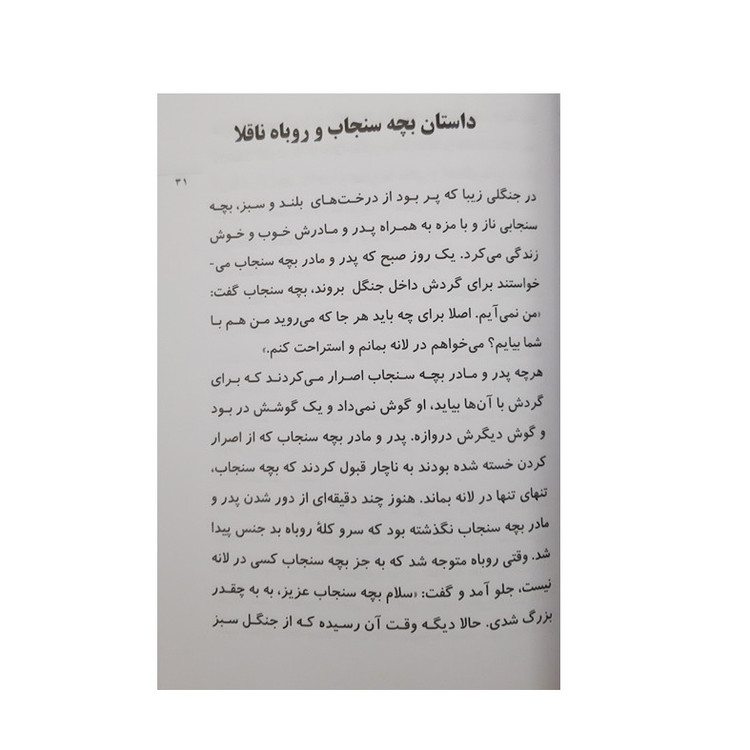 داستان بچه سنجاب و روباه ناقلا
۳۱
در جنگلی زیبا که پر بود از درخت‌های بلند و سبز، بچه
سنجابی ناز و با مزه به همراه پدر و مادرش خوب و خوش
زندگی می‌کرد. یک روز صبح که پدر و مادر بچه سنجاب می-
خواستند برای گردش داخل جنگل بروند، بچه سنجاب گفت:
«من نمی‌آیم. اصلا برای چه باید هر جا که می‌روید من هم با
شما بیایم؟ می‌خواهم در لانه بمانم و استراحت کنم.»
هرچه پدر و مادر بچه سنجاب اصرار می‌کردند که برای
گردش با آن‌ها بیاید، او گوش نمی‌داد و یک گوشش در بود
و گوش دیگرش دروازه. پدر و مادر بچه سنجاب که از اصرار
کردن خسته شده بودند به ناچار قبول کردند که بچه سنجاب،
تنهای تنها در لانه بماند. هنوز چند دقیقه‌ای از دور شدن پدر و
مادر بچه سنجاب نگذشته بود که سرو کلهٔ روباه بد جنس پیدا
شد. وقتی روباه متوجه شد که به جز بچه سنجاب کسی در لانه
نیست، جلو آمد و گفت: «سلام بچه سنجاب عزیز، به به چقدر
بزرگ شدی. حالا دیگه وقت آن رسیده که از جنگل سبز